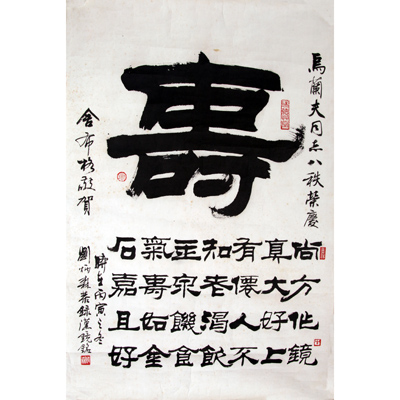 壽
烏蘭夫同志八秩榮慶
尚方作鏡
真大好上
有僊人不
知老渴飲
玉泉饑食
棗壽如金
石嘉且好
時在丙寅之冬
劉炳森恭錄漢鏡銘
敬賀